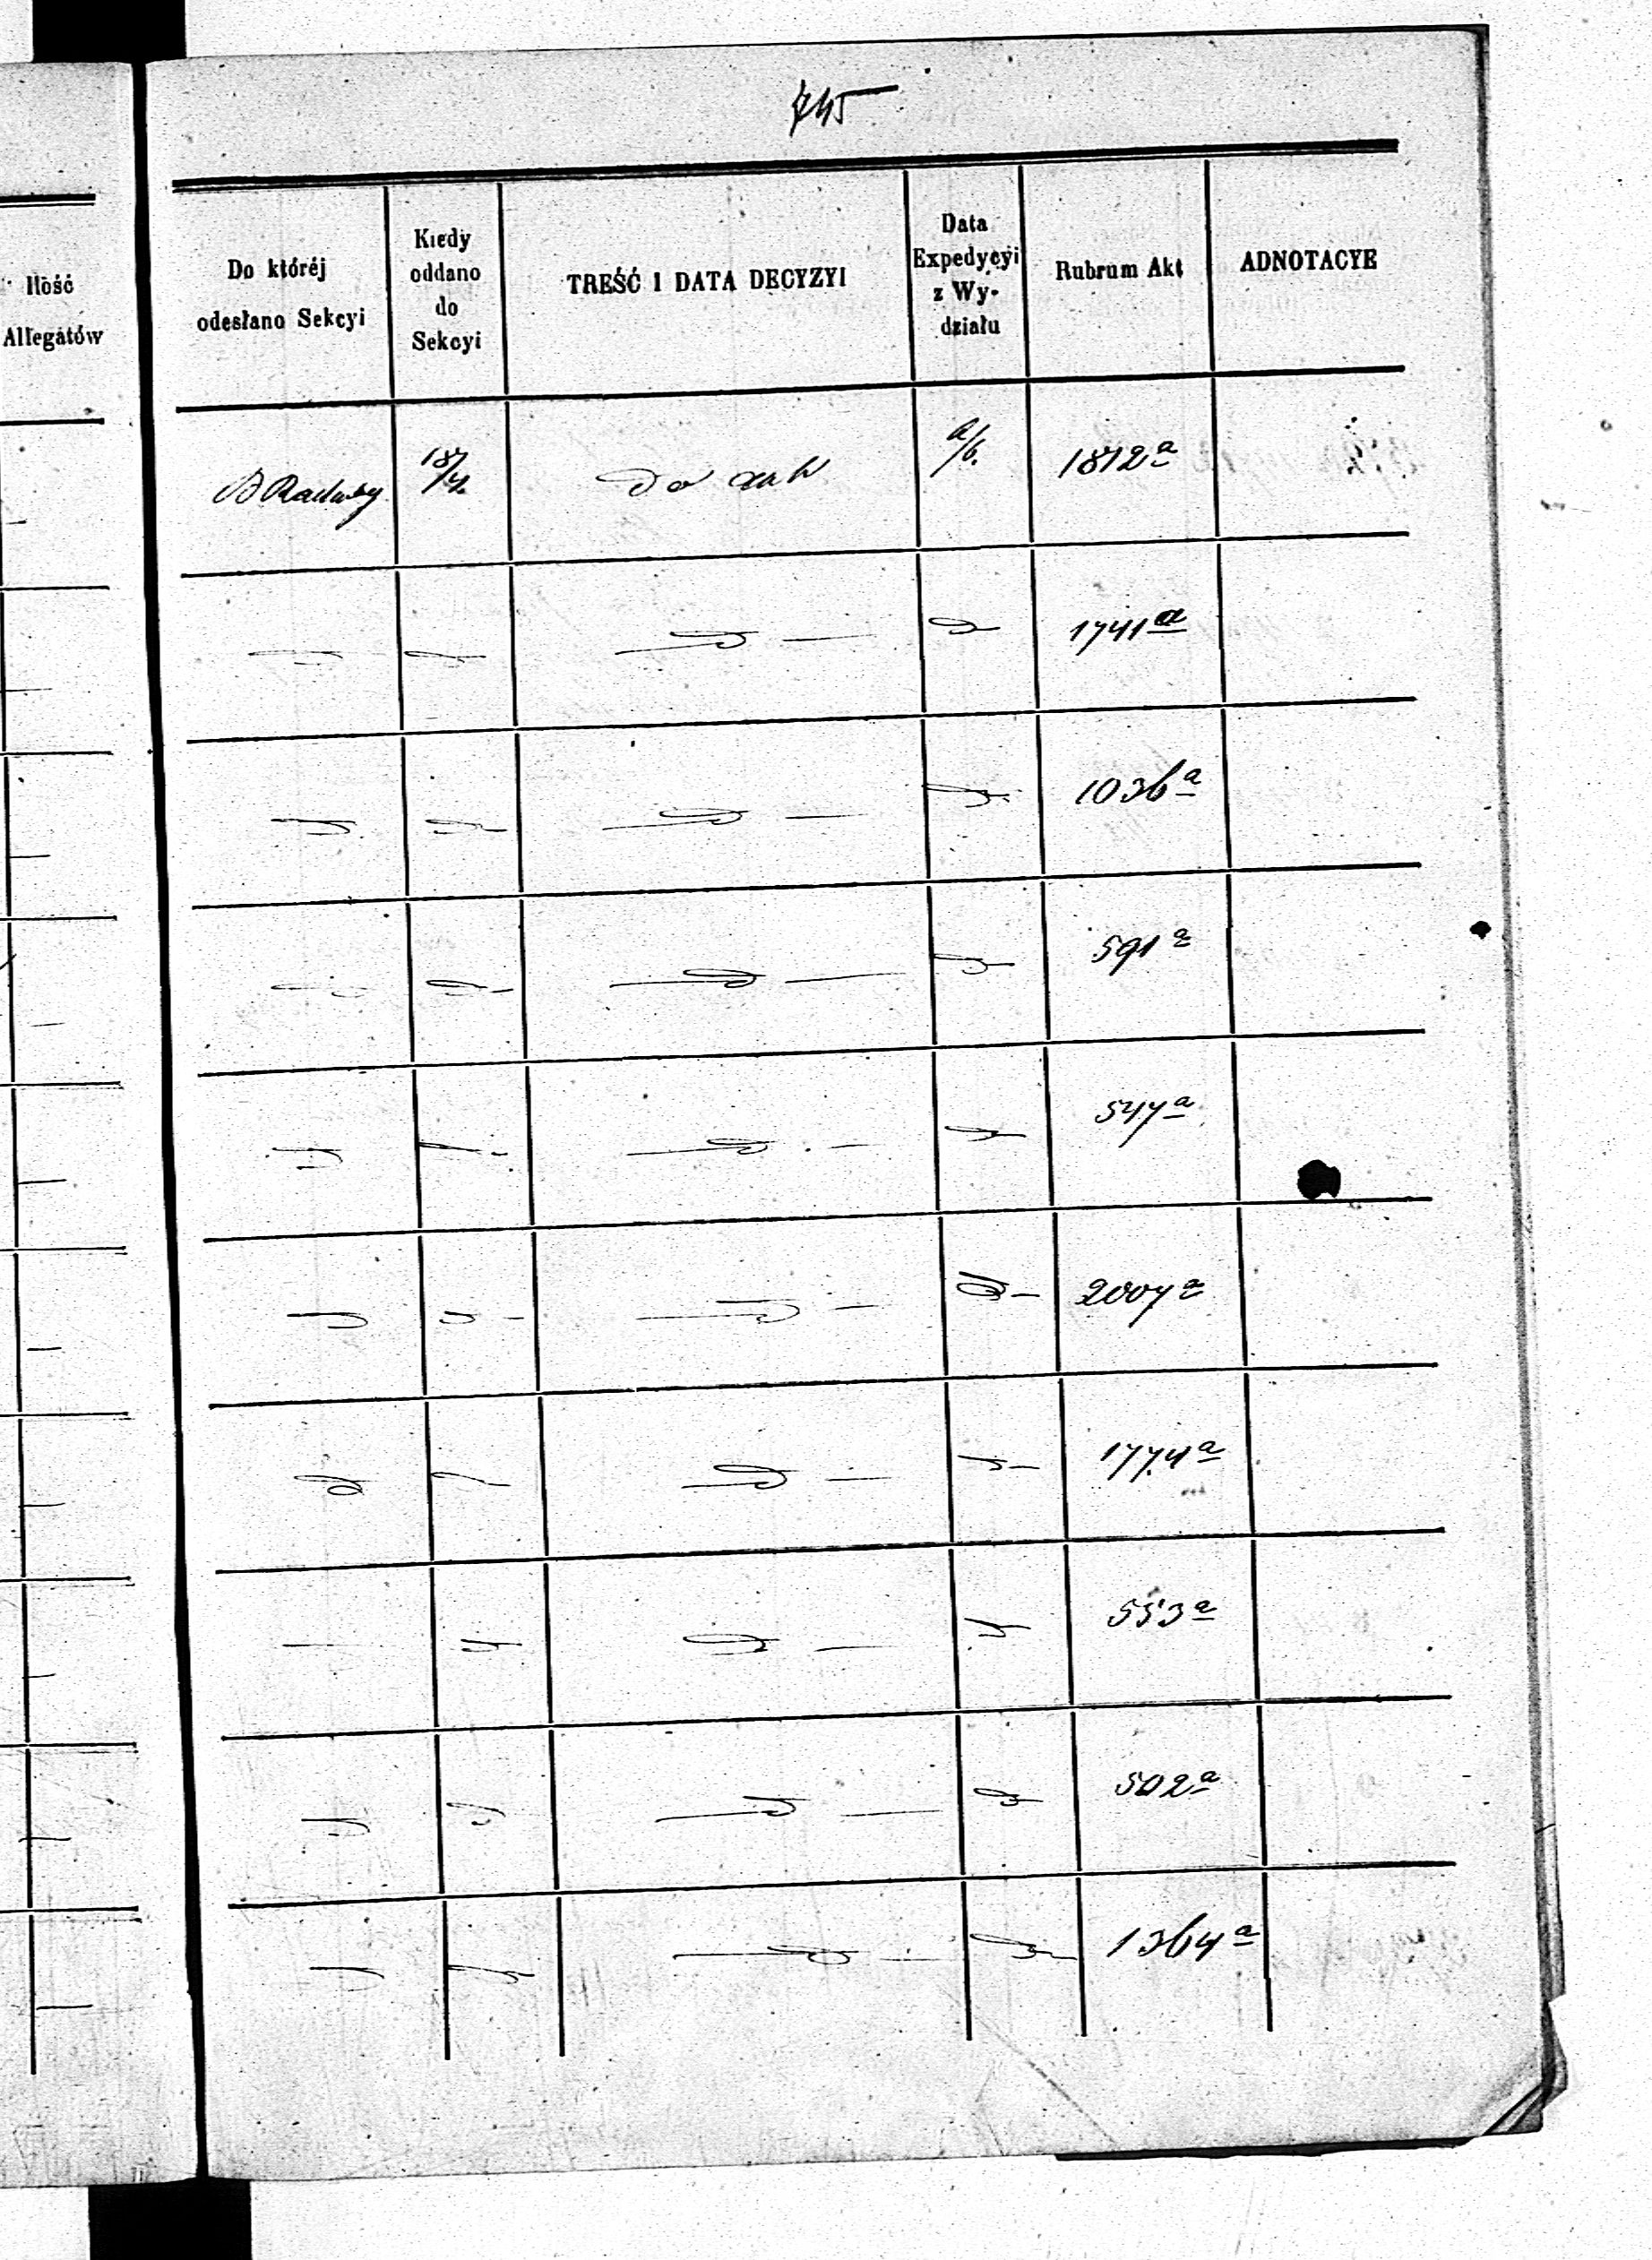 745
Ilość
Allegatów
Do któréj
odesłano Sekcyi
Kiedy
oddano
do
Sekcyi
TREŚĆ I DATA DECYZYI
Data
Expedycyi
z Wy-
działu
Rubrum Akt
ADNOTACYE
Do akt
1872 a
1741 a
1036 a
591 a
547 a
2007 a
1774 a
553 a
502 a
1364 a